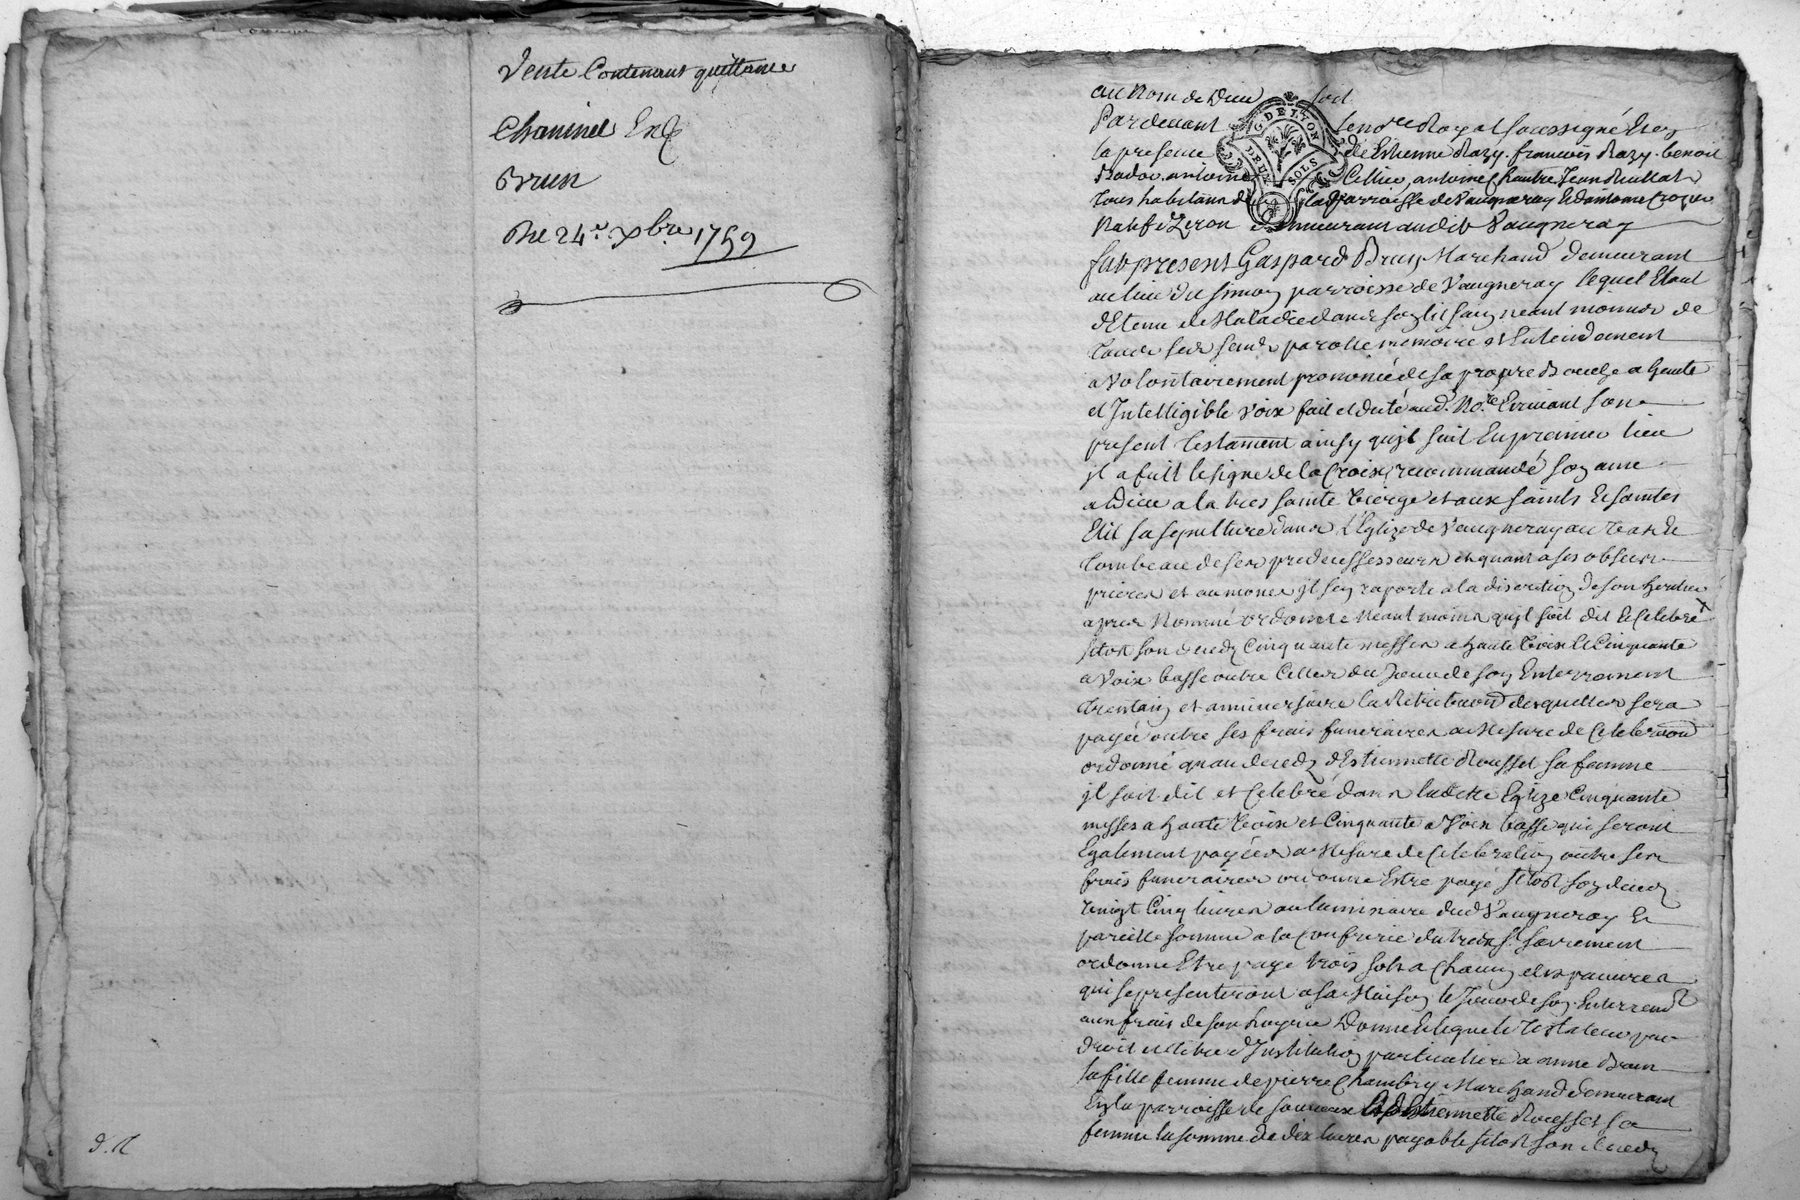 Vente Contenant quittance
Chaminel
Brun
Du 24e Xbre 1759
au Nom de Dieu soit
Pardevant le no.re Royal soussigné Et en
la presence de Estienne Razy. francois Razy. benoit
Badoc. antoine Cellier, antoine Chantre Jean
tous habitans de la parroisse de Vaugneray Et antoine
Natif d'Izeron demeurant audit Vaugneray
G. DE LYON
DEUX SOLS
fut present Gaspard Brun Marchand demeurant
au lieu du simon parroisse de Vaugneray lequel Etant
detenu de Maladie dans son lit jouissant neant moins de
tous ses sens parolle memoire et Entendement
a Volontairement prononcé de sa propre Bouche a haute
et Intelligible voix fait et dicté aud. No.re Ecrivant son
present testament ainsy qu'jl suit En premier lieu
jl a fait le signe de la Croix, recommandé son ame
a Dieu a la tres sainte Vierge et aux saints Et saintes
Elit sa sepulture dans L'Eglize de Vaugneray au Vas Et
tombeau de ses predecessseurs et quant a ses obseques
prieres et aumones jl s'en raporte a la discretion de son heritier
apres Nommé ordonne Neant moins qu'jl soit dit Et Celebré
sitot son deceds Cinquante messes a haute Voix Et Cinquante
a Voix basse outre Celles du Jour de son Enterrement
trentain et anniversaire la Retribuon desquelles sera
payée outre ses frais funeraires a Mesure de Celebraon
ordonne qu'au deceds d'Estiennette Rousset sa femme
jl soit dit et Celebré dans ladite Eglize Cinquante
messes a haute Voix et Cinquante a Voix basse qui seront
Egalement payées a Mesure de Celebration outre ses
frais funeraires ordonne Estre payé sitot son deceds
vingt Cinq livres au luminaire dud Vaugneray Et
pareille somme a la Confrerie du tres St. sacrement
ordonne Etre paye trois sols a Chacun des pauvres
qui se presenteront a sa Maison le Jour de son Enterremt
aux frais de son hoyrie Donne Et legue le testateur par
droit et titre d'Institution particuliere a anne Brun
sa fille femme de pierre Chambry Marchand demeurant
En la parroisse de Estiennette Rousset sa
femme la somme de dix livres payable sitot son deceds